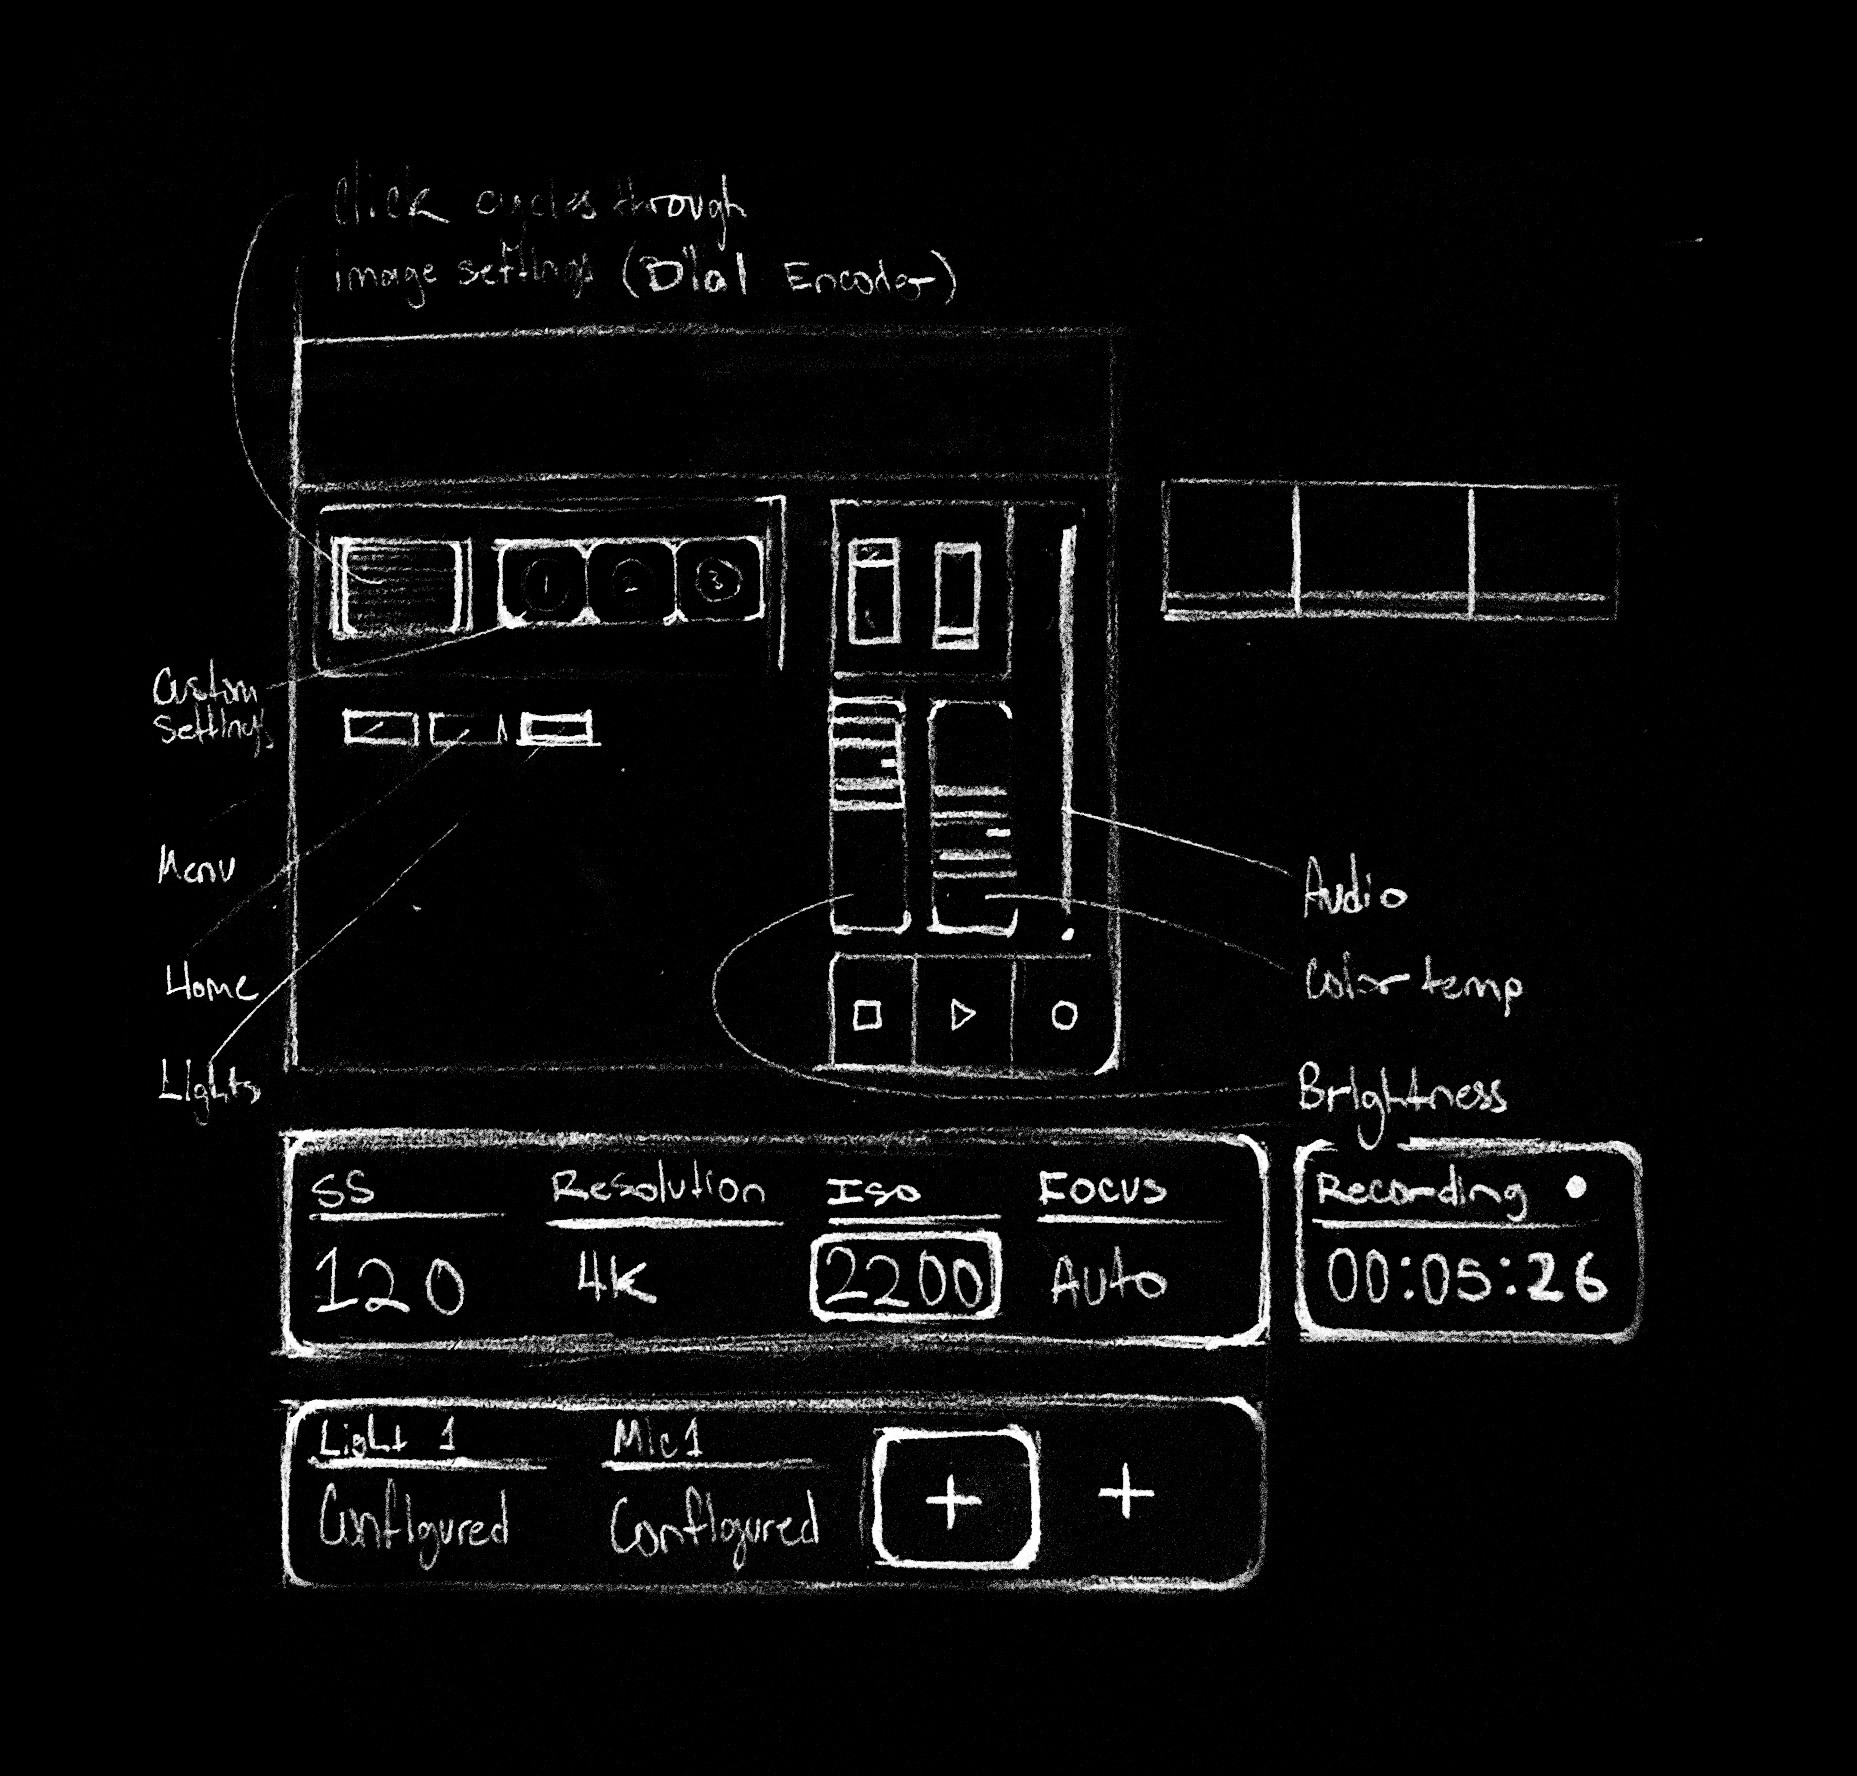 Click cycles through
image settings (Dial Encoder)
1 2 3
Custom
Settings
Menu
Home
Lights
Audio
Color temp
Brightness
SS Resolution Iso Focus
120 4K 2200 Auto
Recording
00:05:26
Light 1 Mic1
Configured Configured
+ +